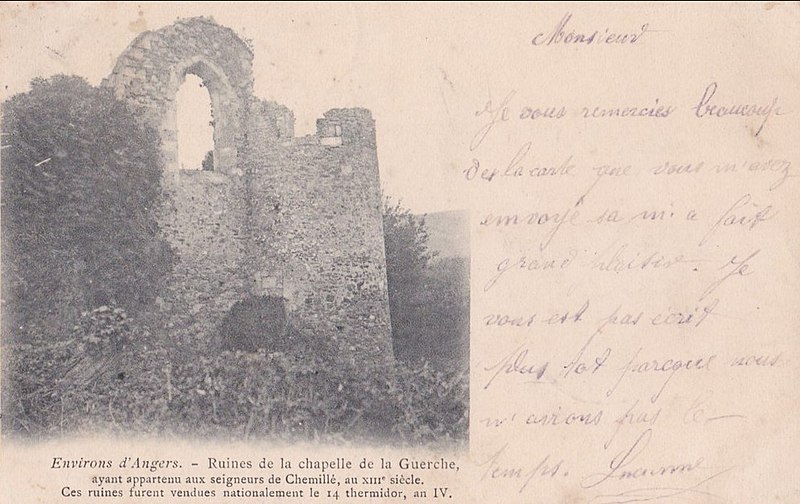 Environs d'Angers. – Ruines de la chapelle de la Guerche,
ayant appartenu aux seigneurs de Chemillé, au XIIIe siècle.
Ces ruines furent vendues nationalement le 14 thermidor, an IV.
Monsieur
Je vous remercies beaucoup
de la carte que vous m'avez
envoyé sa m'a fait
grand plaisir. Je
vous est pas écrit
plus tot parcque nous
n'avions pas le
temps.